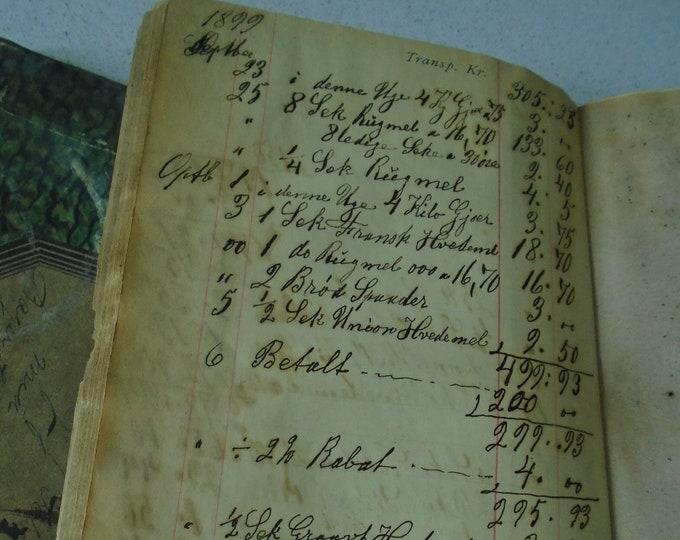 1899
Septbr
Transp. Kr. 305. 23
23 i denne Uge 4 Kg Gjær a 75 3. "
25 8 Sek Rugmel a 16,70 133. 60
" 8 ledige Seke a 30 öre 2. 40
" 1/4 Sek Rugmel 4. 5
Optb 1 i denne Uge 4 Kilo Gjær 3. 75
3 1 Sek Fransk Hvedemel 18. 70
00 1 do Rugmel 000 a 16,70 16. 70
" 2 Bröd Spander 3. 00
5 1/2 Sek Union Hvedemel 9. 50
499. 93
6 Betalt 200 00
299. 93
" ÷ 2% Rabat 4. 00
295. 93
" 1/2 Sek